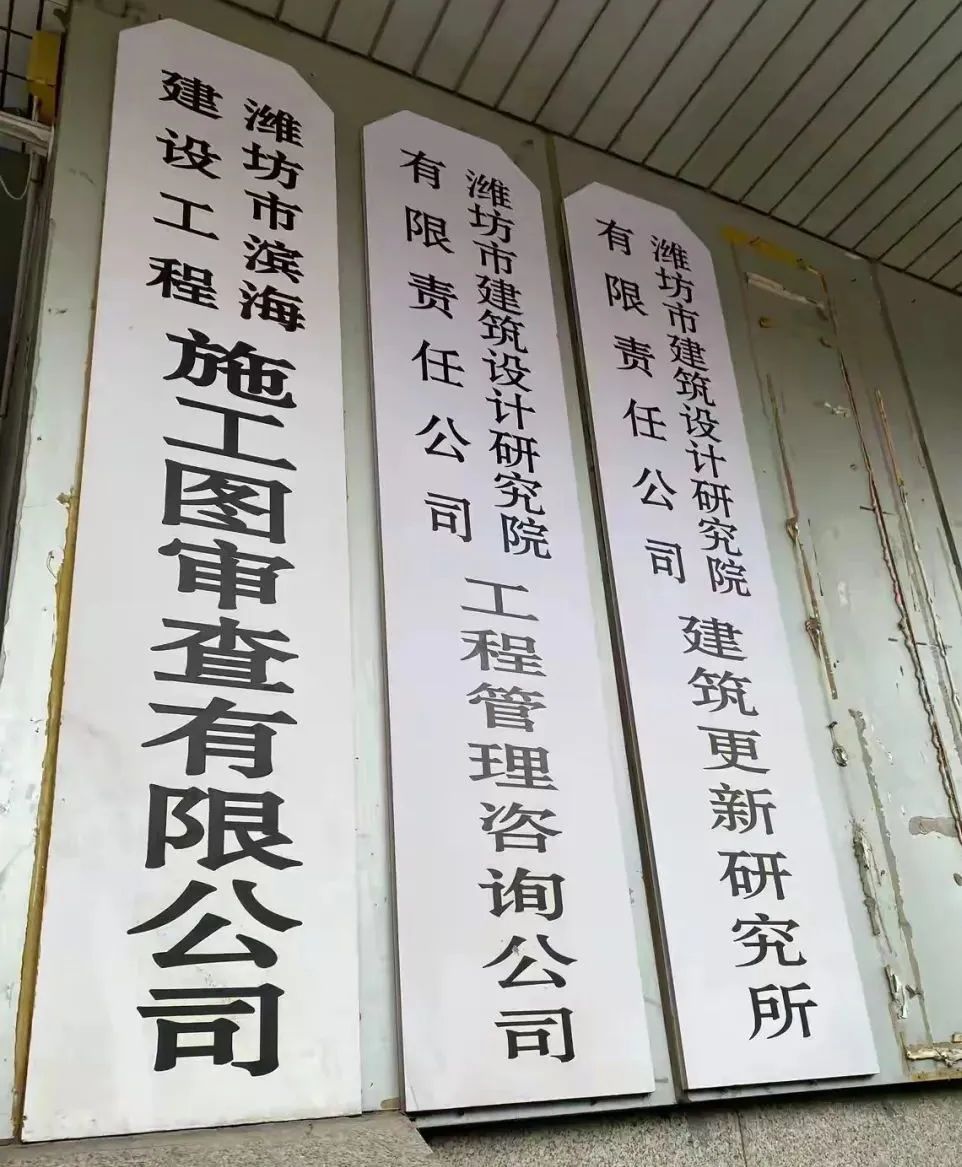 潍坊市滨海
建设工程
施工图审查有限公司
潍坊市建筑设计研究院
有限责任公司
工程管理咨询公司
潍坊市建筑设计研究院
有限责任公司
建筑更新研究所